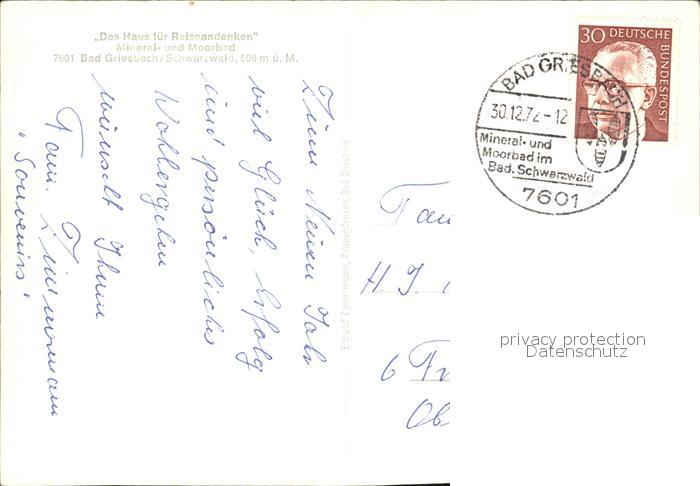 „Das Haus für Reiseandenken"
Mineral- und Moorbad
7601 Bad Griesbach/Schwarzwald, 508 m ü. M.
Zum Neuen Jahr
viel Glück, Erfolg
und persönliches
Wohlergehen
wünscht Ihnen
Fam. Zimmermann
"Souvenirs"
Edmund Zimmermann, Reiseandenken, Bad Griesbach
30 DEUTSCHE
BUNDESPOST
BAD GRIESBACH
30.12.72-12
Mineral- und
Moorbad im
Bad. Schwarzwald
7601
Fam
H. J.
6 Fr
Ob
privacy protection
Datenschutz